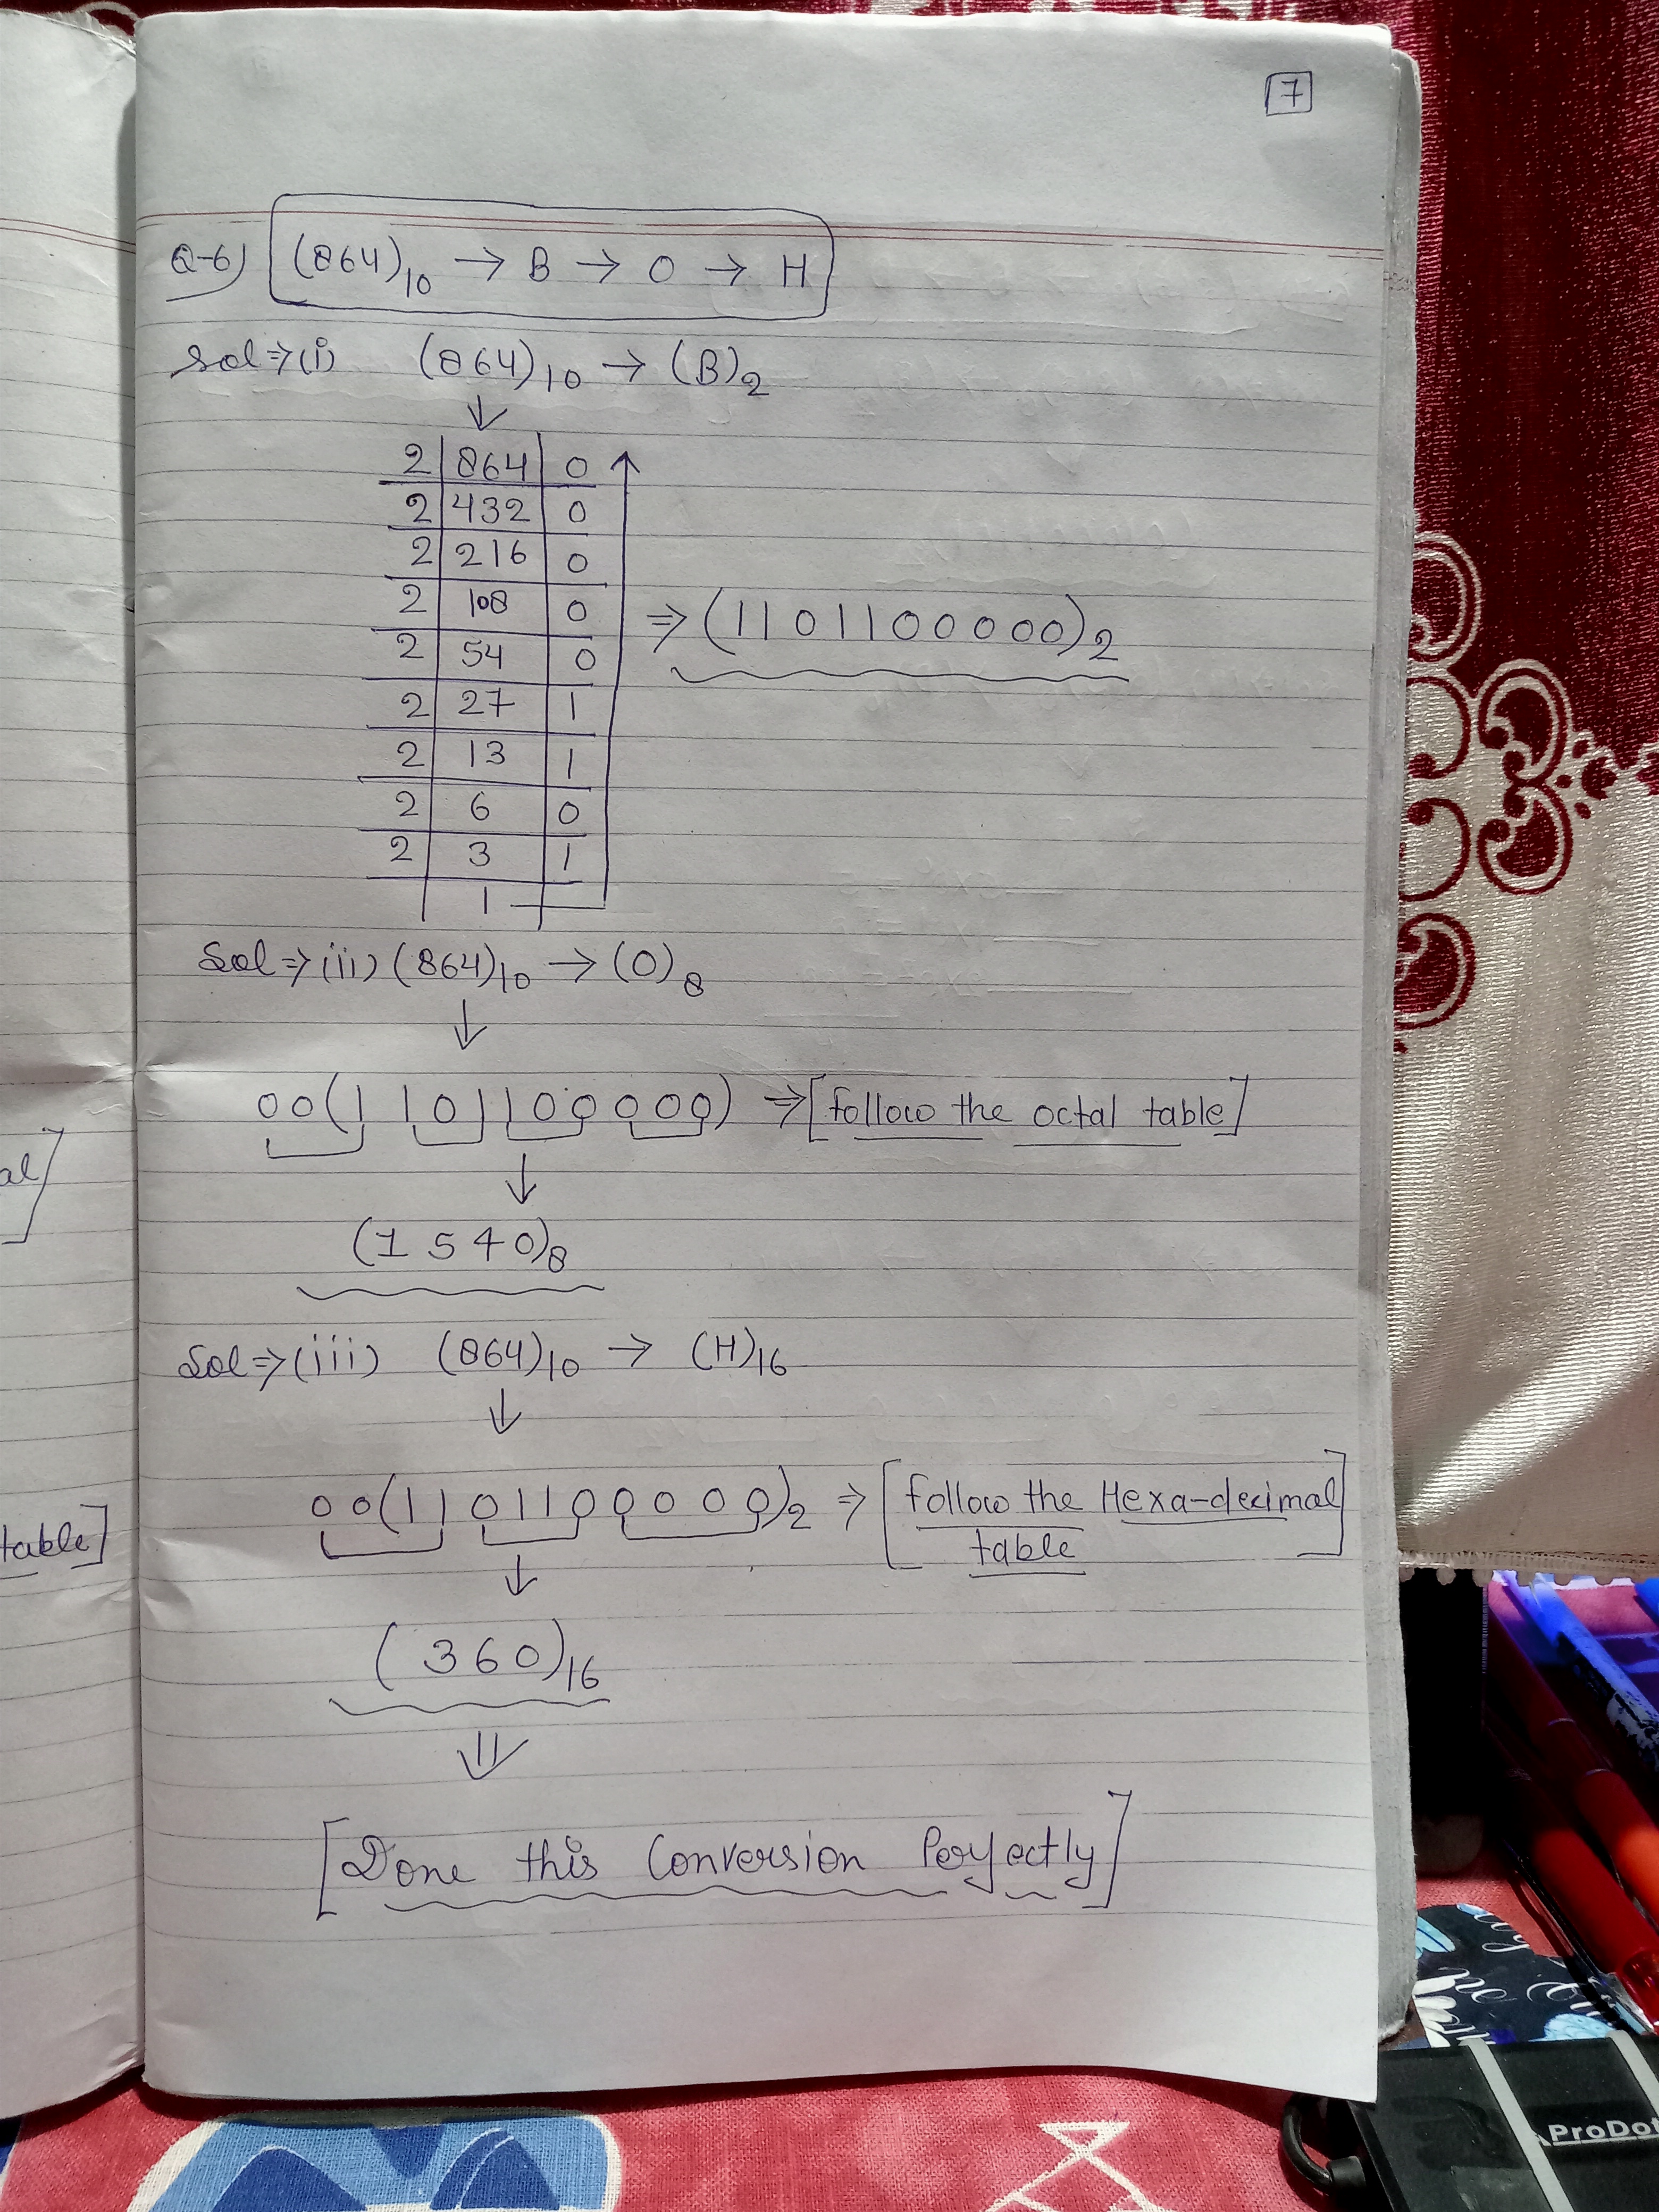 7
Q-6) (864)10 → B → O → H
Sol⇒(i) (864)10 → (B)2
↓
2 | 864 | 0
2 | 432 | 0
2 | 216 | 0
2 | 108 | 0
2 | 54 | 0
⇒ (1101100000)2
2 | 27 | 1
2 | 13 | 1
2 | 6 | 0
2 | 3 | 1
1
Sol⇒(ii) (864)10 → (O)8
↓
00(1101100000) ⇒ [follow the octal table]
↓
(1540)8
Sol⇒(iii) (864)10 → (H)16
↓
00(1101100000)2 ⇒ [follow the Hexa-decimal
table]
↓
(360)16
⇓
[Done this Conversion Perfectly]
al]
table]
ProDot